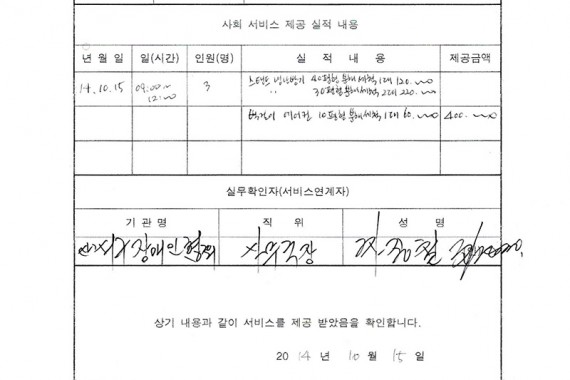 사회 서비스 제공 실적 내용
년 월 일 일(시간) 인원(명) 실 적 내 용 제공금액
14.10.15 09:00~ 3 스탠드 냉난방기 40평형 분해세척 1대 120.000
12:00 〃 30평형 분해세척 2대 220.000
벽걸이 에어컨 10평형 분해세척 1대 60.000 400.000
실무확인자(서비스연계자)
기 관 명 직 위 성 명
장애인협회
상기 내용과 같이 서비스를 제공 받았음을 확인합니다.
2014 년 10 월 15 일